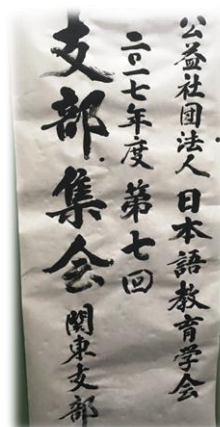 公益社団法人 日本語教育学会
二〇一七年度 第七回
支部集会 関東支部